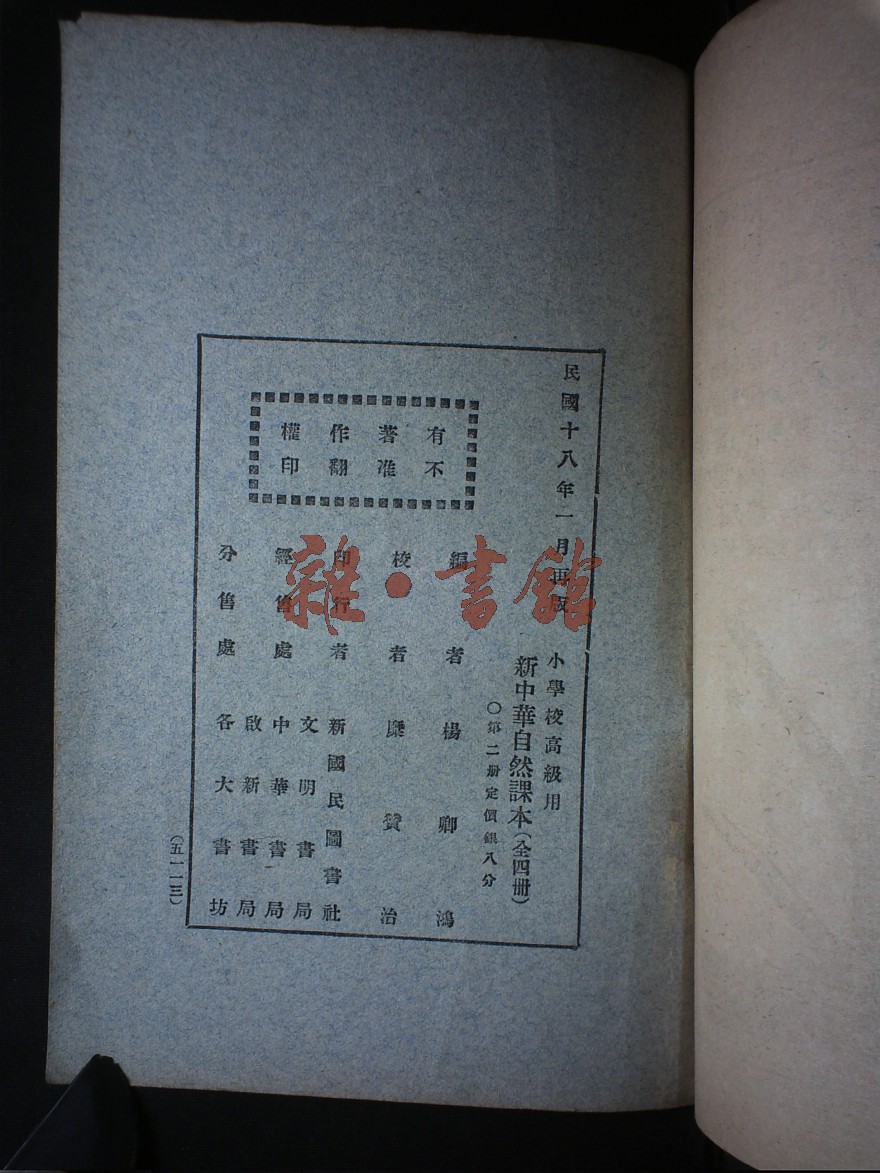 民國十八年一月再版
小學校高級用
新中華自然課本(全四册)
○第二册定價銀八分
有不
著准
作翻
權印
編者 楊卿鴻
校者 糜贊治
印行者 新國民圖書社
文明書局
經售處 中華書局
啟新書局
分售處 各大書坊
(五一一三)
雜·書館